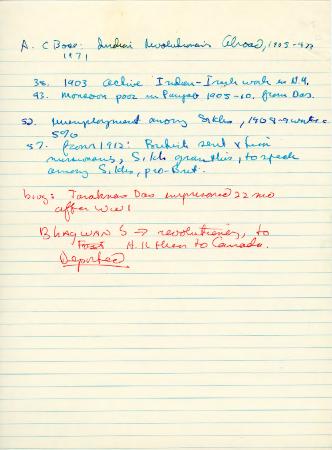 A. C Bose: Indian Revolutionaries Abroad, 1905-
1971
38. 1903 active Indian-Irish work in N.Y.
43. Monsoon poor in Punjab 1905-10. from Das.
52. Unemployment among Sikhs, 1908-9 winter
5%
57. from 1912: British sent
missionaries, Sikh granthis, to speak
among Sikhs, pro-Brit.
biog: Taraknas Das imprisoned 22 mo
after WW I
BHAGWAN S → revolutionary, to
H.K then to Canada.
Deported